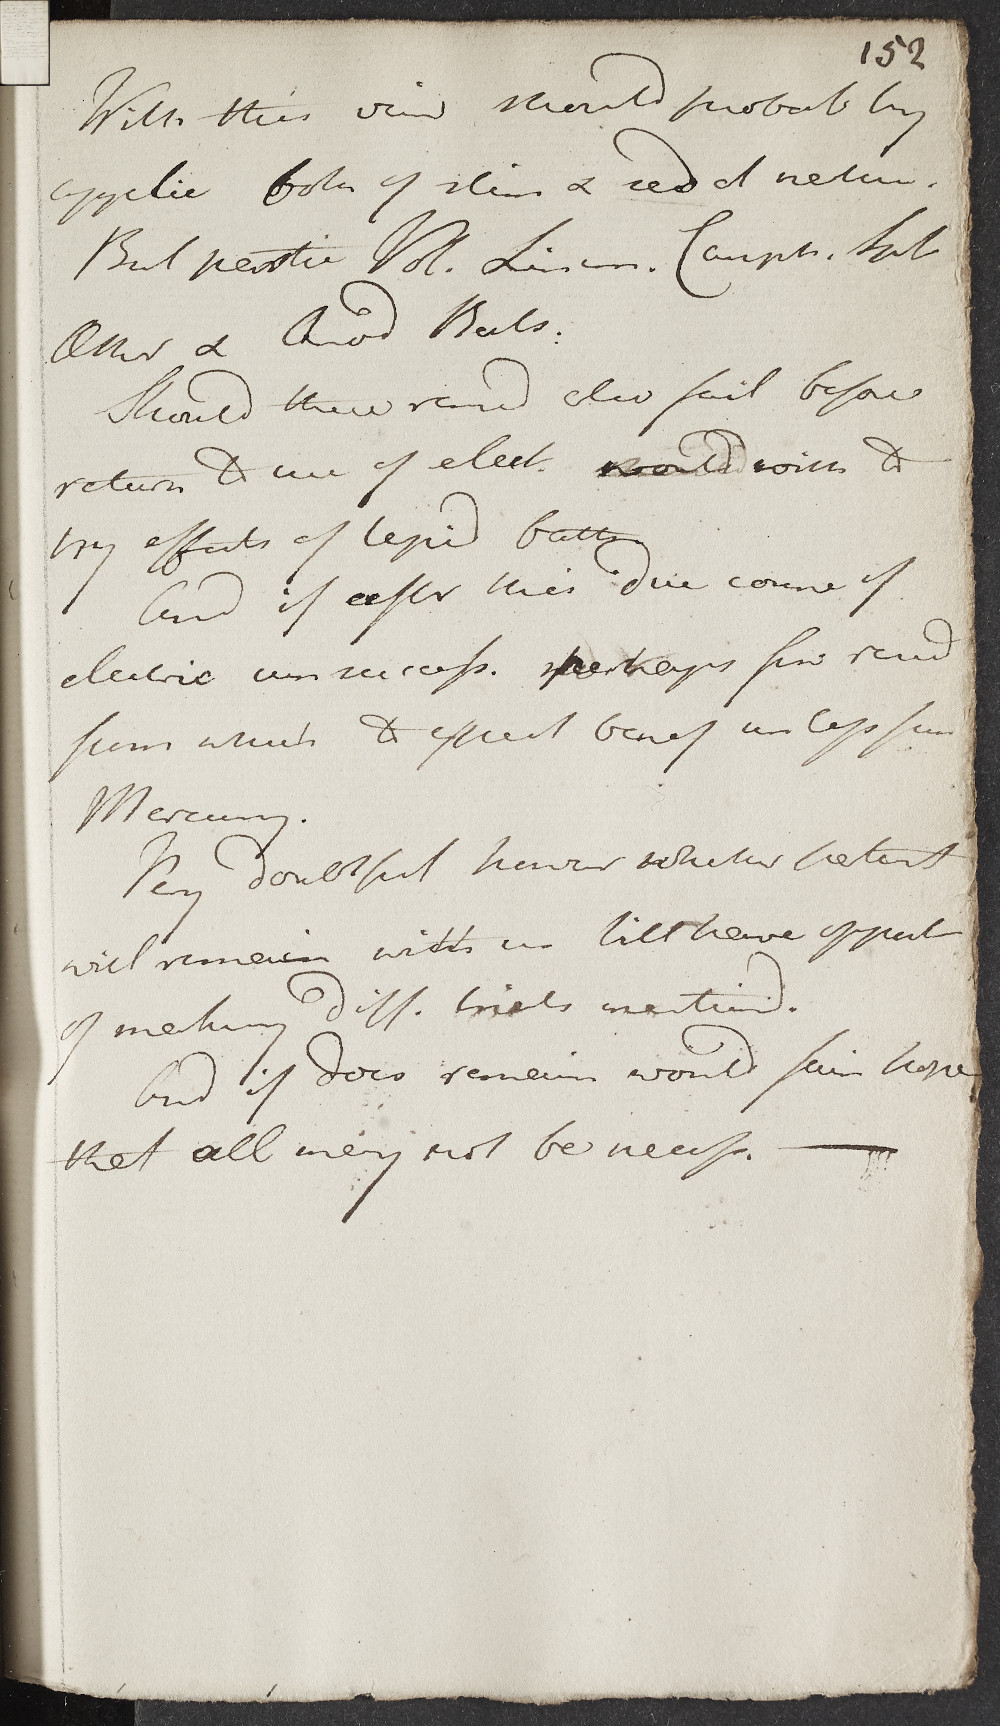 152
With this view should probably try
applic both of stim & sedat nature.
But partic Vol. Linim. Camph. Spt
Æther & Anod Bals.
Should these remed also fail before
return to use of elect. would wish to
try effects of tepid bath
And if after this due course of
electric unsuccess. perhaps few remed
from which to expect benef unless from
Mercury.
Very doubtful however whether patient
will remain with us till have opport
of making diff. trials mentiond.
And if does remain would fain hope
that all may not be necess.